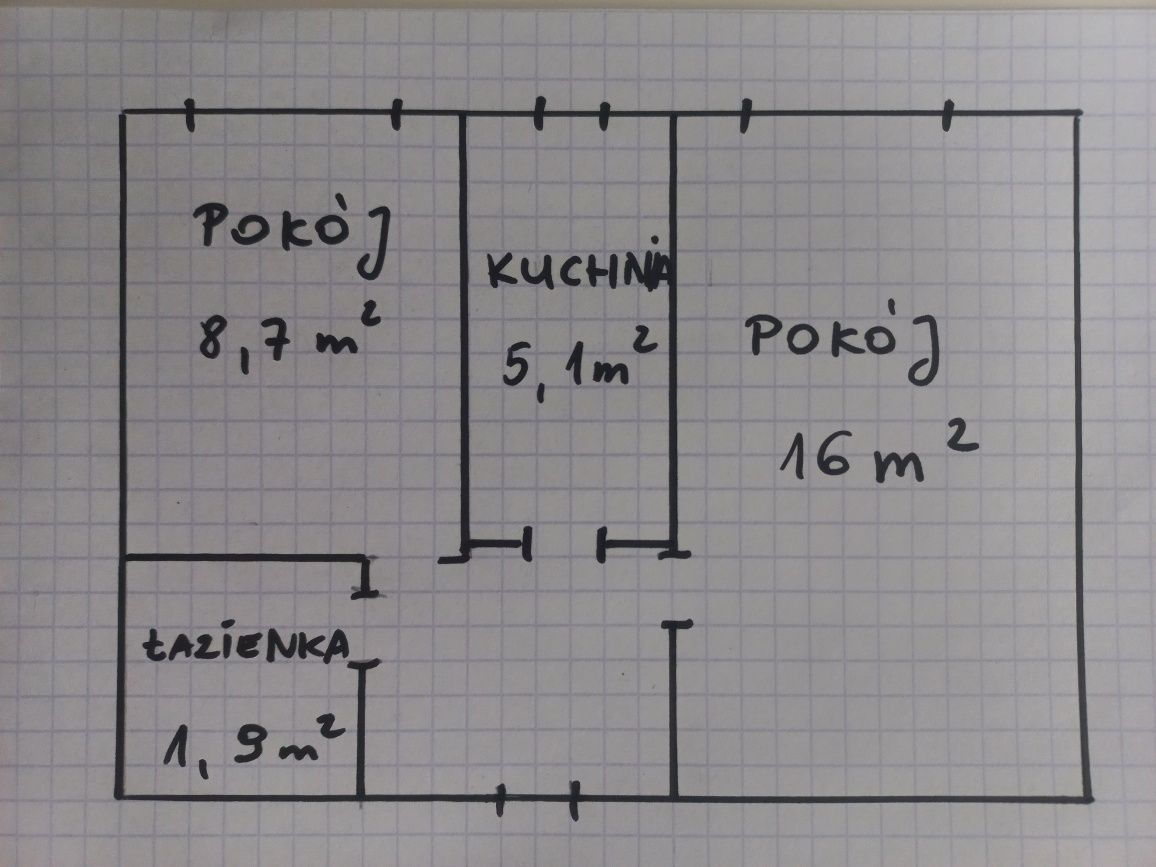 POKÓJ
8,7 m²
KUCHNIA
5,1 m²
POKÓJ
16 m²
ŁAZIENKA
1,9 m²